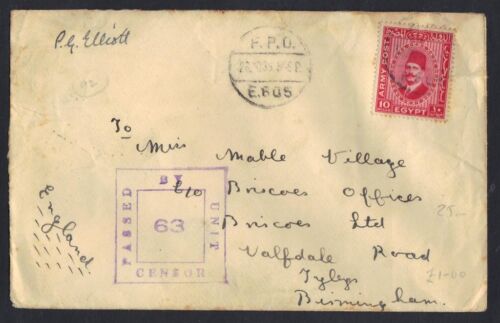 P.G. Elliott
92
F.P.O.
E.605
ARMY POST
10
EGYPT
١٠
To
Miss Mable Village
c/o Briscoes Offices
Briscoes Ltd
Valfdale Road
Tyleys
Birmingham.
England
PASSED BY UNIT CENSOR
63
25-
£1-00